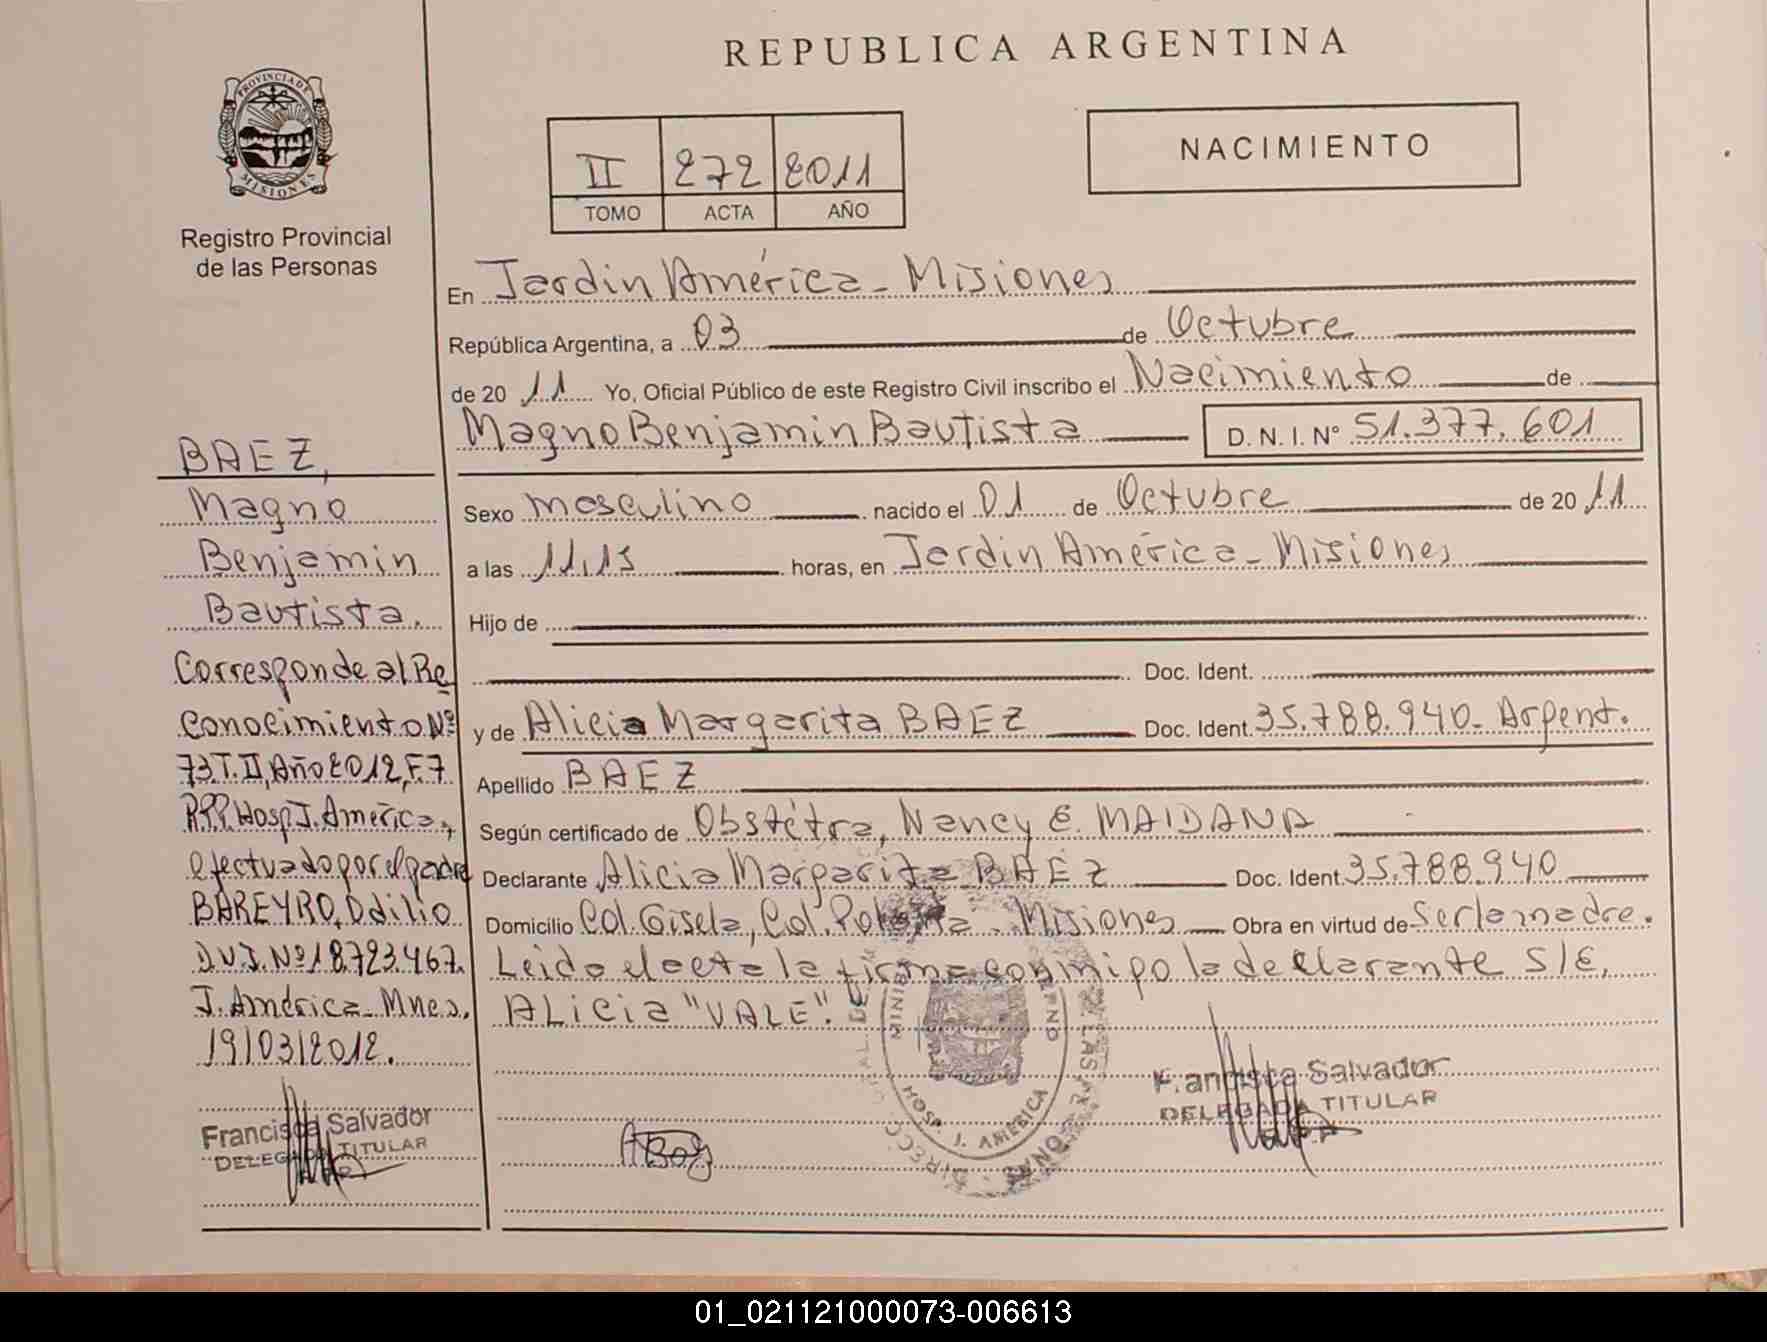 REPUBLICA ARGENTINA
PROVINCIA DE
MISIONES
Registro Provincial
de las Personas
II 272 2011
TOMO ACTA AÑO
NACIMIENTO
En Jardin América - Misiones
República Argentina, a 03 de Octubre
de 20 11 Yo, Oficial Público de este Registro Civil inscribo el Nacimiento de
Magno Benjamin Bautista D. N. I. Nº 51.377.601
Sexo masculino nacido el 01 de Octubre de 20 11
a las 11,15 horas, en Jardin América - Misiones
Hijo de
Doc. Ident.
y de Alicia Margarita BAEZ Doc. Ident. 35.788.940 - Argent.
Apellido BAEZ
Según certificado de Obstétra, Nancy E. MAIDANA
Declarante Alicia Margarita BAEZ Doc. Ident. 35.788.940
Domicilio Col. Gisela, Col. Polana - Misiones Obra en virtud de Ser la madre.
Leido el acta la firma conmipo la declarante S/E,
ALicia "VALE".
BAEZ,
Magno
Benjamin
Bautista.
Corresponde al Re
conocimiento Nº
73, T. II, Año 2012, F. 7
RPP. Hosp J. América,
efectuado por el padre
BAREYRO, Odilio
D.U.I. Nº 18.723.467.
J. América - Mnes.
19/03/2012.
Francisca Salvador
DELEGADA TITULAR
HOSP. J. AMERICA
Francisca Salvador
DELEGADA TITULAR
01_021121000073-006613